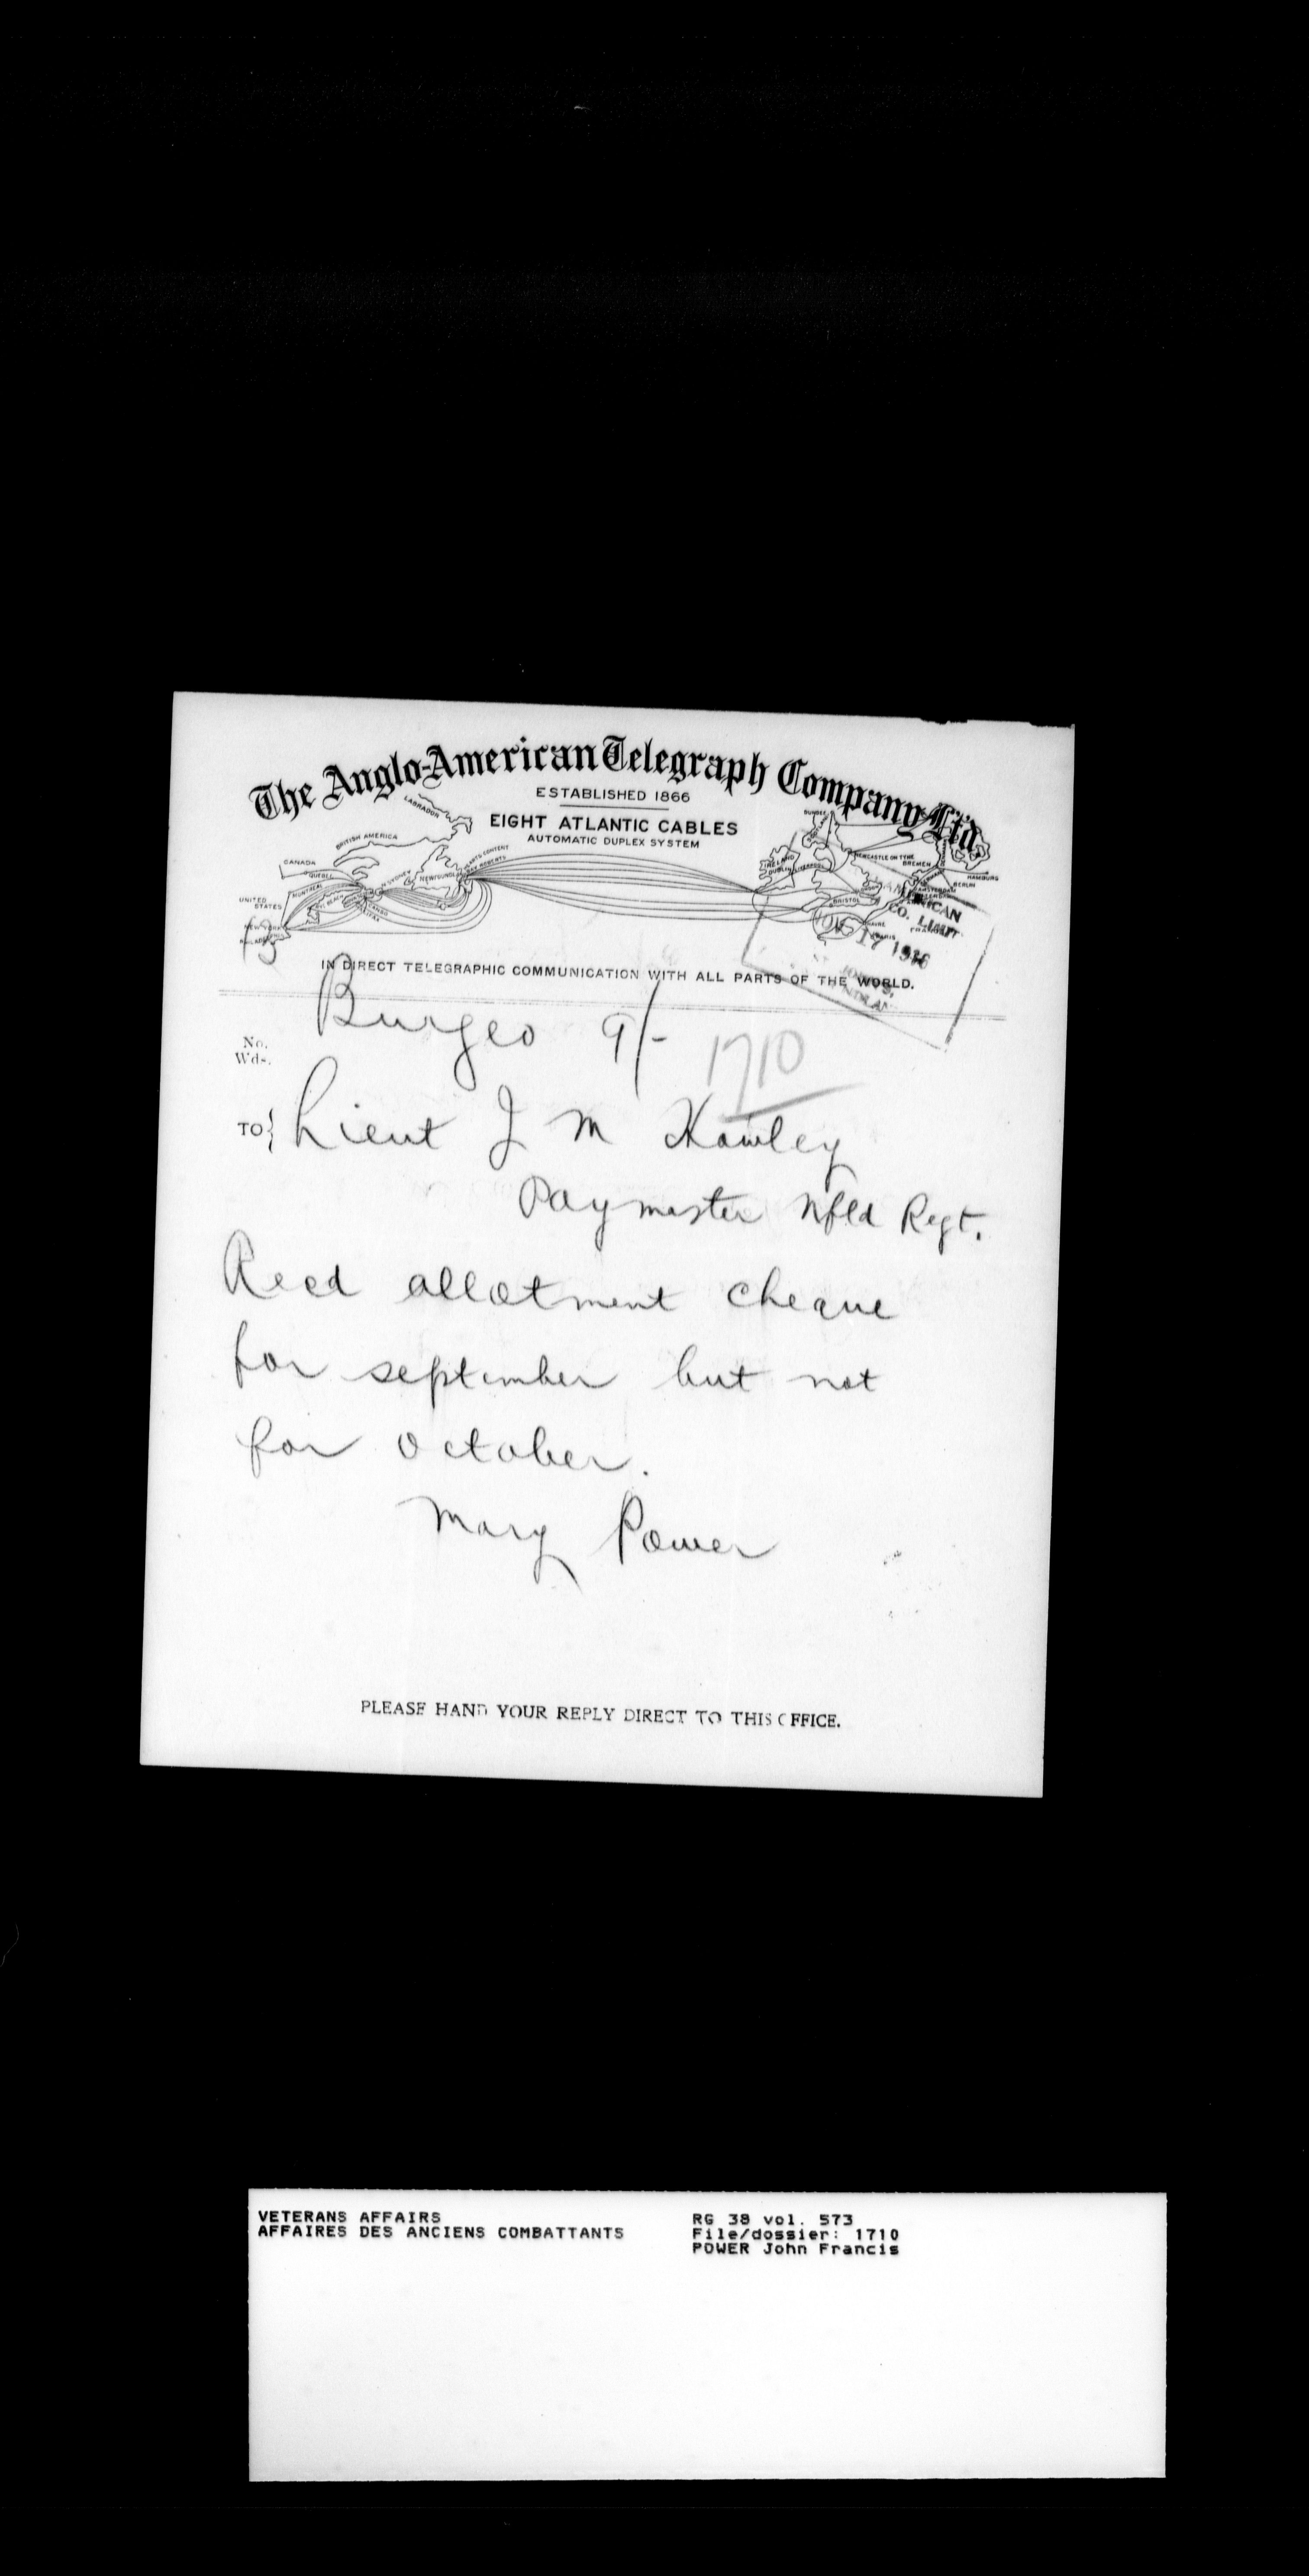 The Anglo-American Telegraph Company Ltd.
ESTABLISHED 1866
EIGHT ATLANTIC CABLES
AUTOMATIC DUPLEX SYSTEM
LABRADOR
BRITISH AMERICA
CANADA
QUEBEC
MONTREAL
UNITED STATES
NEW YORK
NEWFOUNDL
IRELAND
DUBLIN
LIVERPOOL
NEWCASTLE ON TYNE
BREMEN
HAMBURG
BERLIN
BRISTOL
HAVRE
PARIS
AMERICAN
CO. LIMIT
NOV 17 1916
IN DIRECT TELEGRAPHIC COMMUNICATION WITH ALL PARTS OF THE WORLD.
Burgeo 9/-
1710
No.
Wds.
TO Lieut J M Howley
Paymaster Nfld Regt.
Recd allotment cheque
for september but not
for October.
Mary Power
PLEASE HAND YOUR REPLY DIRECT TO THIS OFFICE.
VETERANS AFFAIRS
AFFAIRES DES ANCIENS COMBATTANTS
RG 38 vol. 573
File/dossier: 1710
POWER John Francis